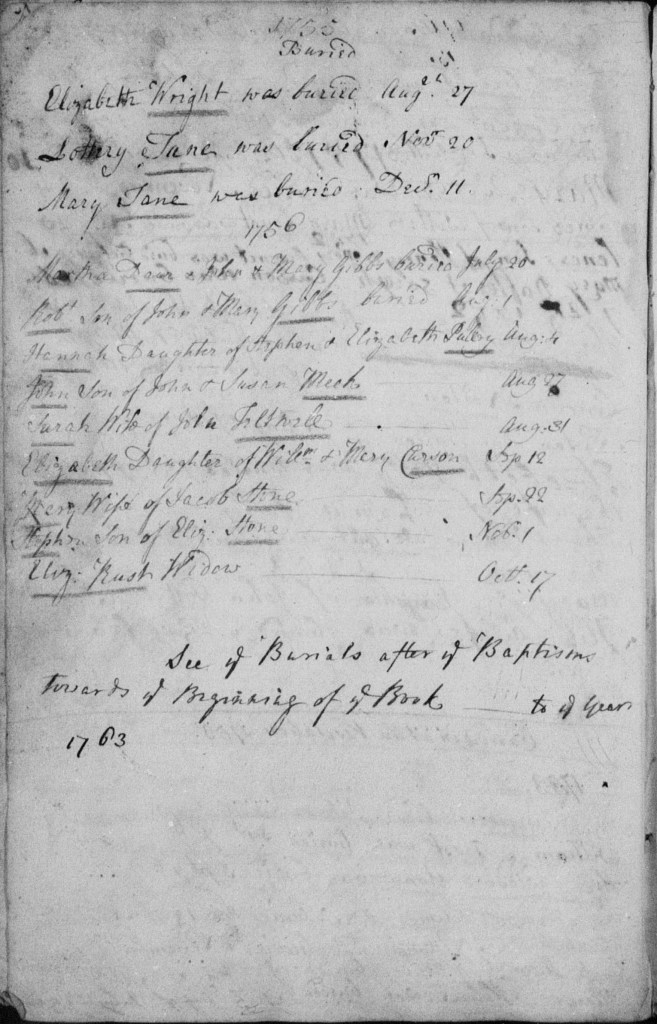 1755
Buried
Elizabeth Wright was buried Augst. 27
Lane was buried Novr. 20
Mary Lane was buried Decr. 11.
1756
Martha Daur & John & Mary Gibbs buried July 20
Robt. Son of John & Mary Gibbs buried Aug. 1
Hannah Daughter of Stephen & Elizabeth Aug: 4
John Son of John & Susan Meek Aug 27
Sarah Wife of John Aug. 31
Elizabeth Daughter of Willm. & Mary Carson Sep. 12
Mary Wife of Jacob Stone Sep. 22
Stephen Son of Eliz: Stone Nobr. 1
Eliz: Rush Widow Octr. 17
See ye Burials after ye Baptisms
towards ye Beginning of ye Book to ye Year
1763